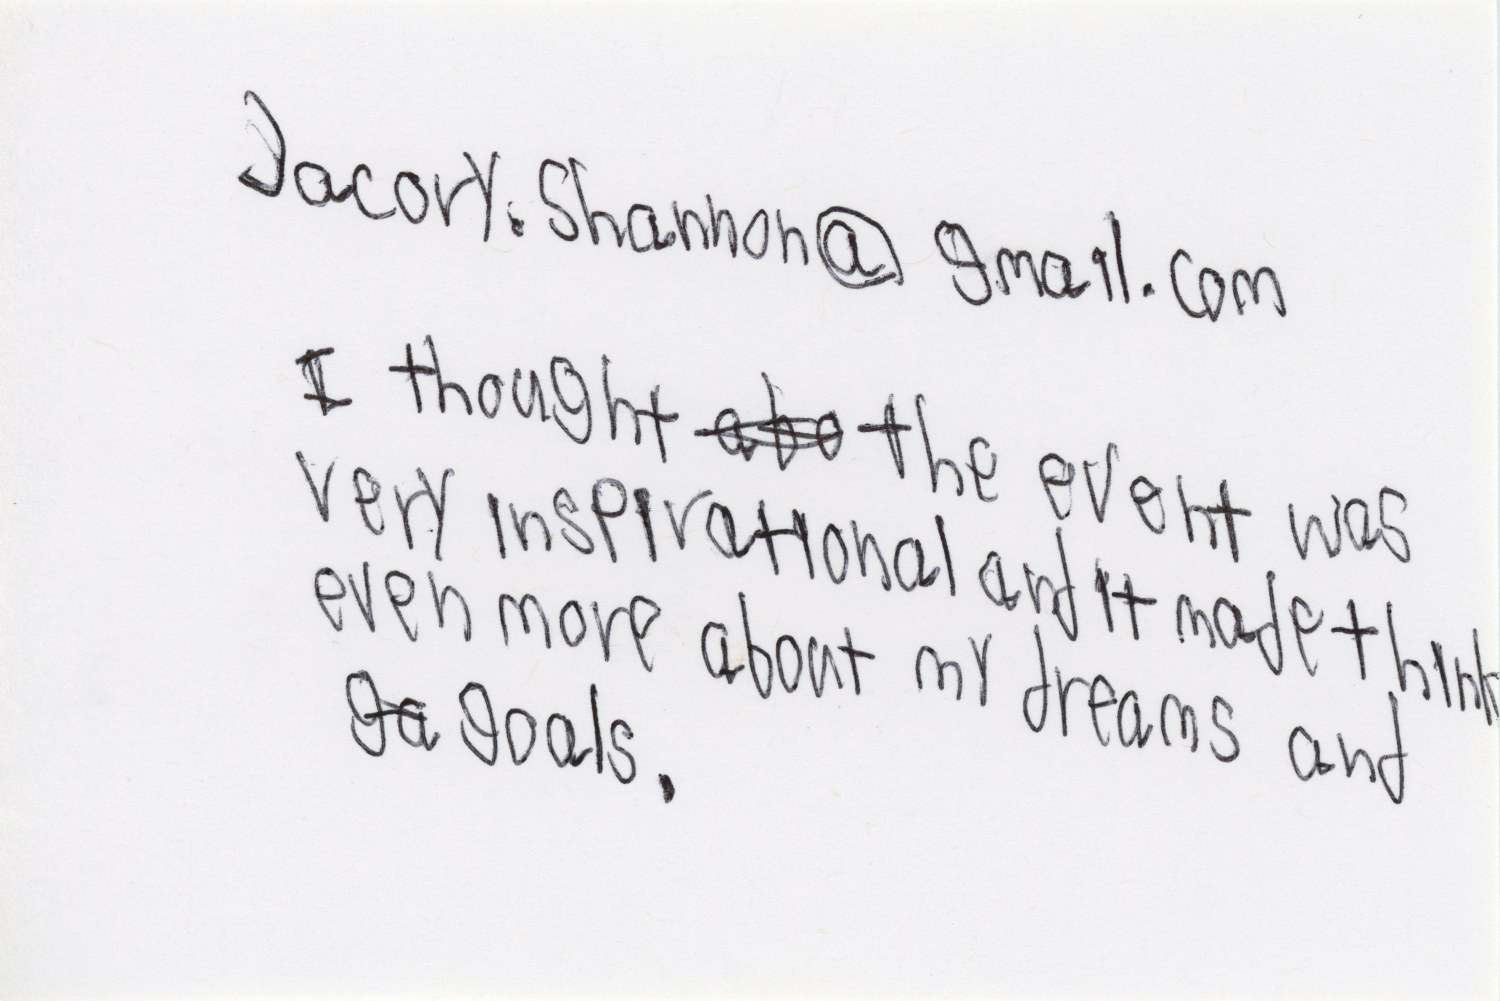 Jacory.Shannon@gmail.com
I thought abo the event was
very inspirational and it made think
even more about my dreams and
ga goals.